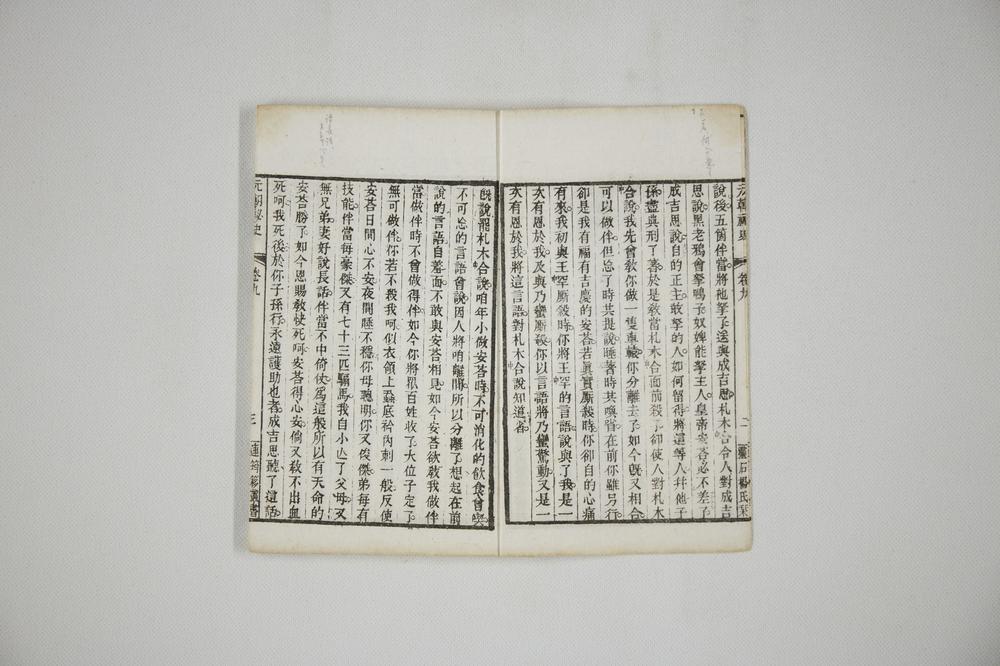 元朝祕史 卷九 二 靈石楊氏栞
說後五箇伴當將他拏了送與成吉思札木合令人對成吉
思說黑老鴉會拏鳴子奴婢能拏主人皇帝安荅必不差了
成吉思說自的正主敢拏的人如何留得將這等人幷他子
孫盡典刑了著於是敎當札木合面前殺了卻使人對札木
合說我先曾敎你做一隻車轅你分離去了如今旣又相合
可以做伴但忘了時共提說睡著時共喚省在前你雖另行
卻是我有福有吉慶的安荅若眞實厮殺時你卻自的心痛
有來我初與王罕厮殺時你將王罕的言語說與了我是一
次有恩於我及與乃蠻厮殺你以言語將乃蠻驚動又是一
次有恩於我將這言語對札木合說知道者
旣說罷札木合說咱年小做安荅時不可消化的飮食曾喫
不可忘的言語曾說因人將咱離間所以分離了想起在前
說的言語自羞面不敢與安荅相見如今安荅欲敎我做伴
當做伴時不曾做得伴如今你將眾百姓收了大位子定了
無可做伴你若不殺我呵似衣領上蝨底衿內刺一般反使
安荅日間心不安夜間睡不穩你母聰明你又俊傑弟每有
技能伴當每豪傑又有七十三匹騸馬我自小亾了父母又
無兄弟妻好說長話伴當不中倚仗爲這般所以有天命的
安荅勝了如今恩賜敎快死呵安荅得心安倘又敎不出血
死呵我死後於你子孫行永遠護助也者成吉思聽了這話
元朝祕史 卷九 三 連筠簃叢書